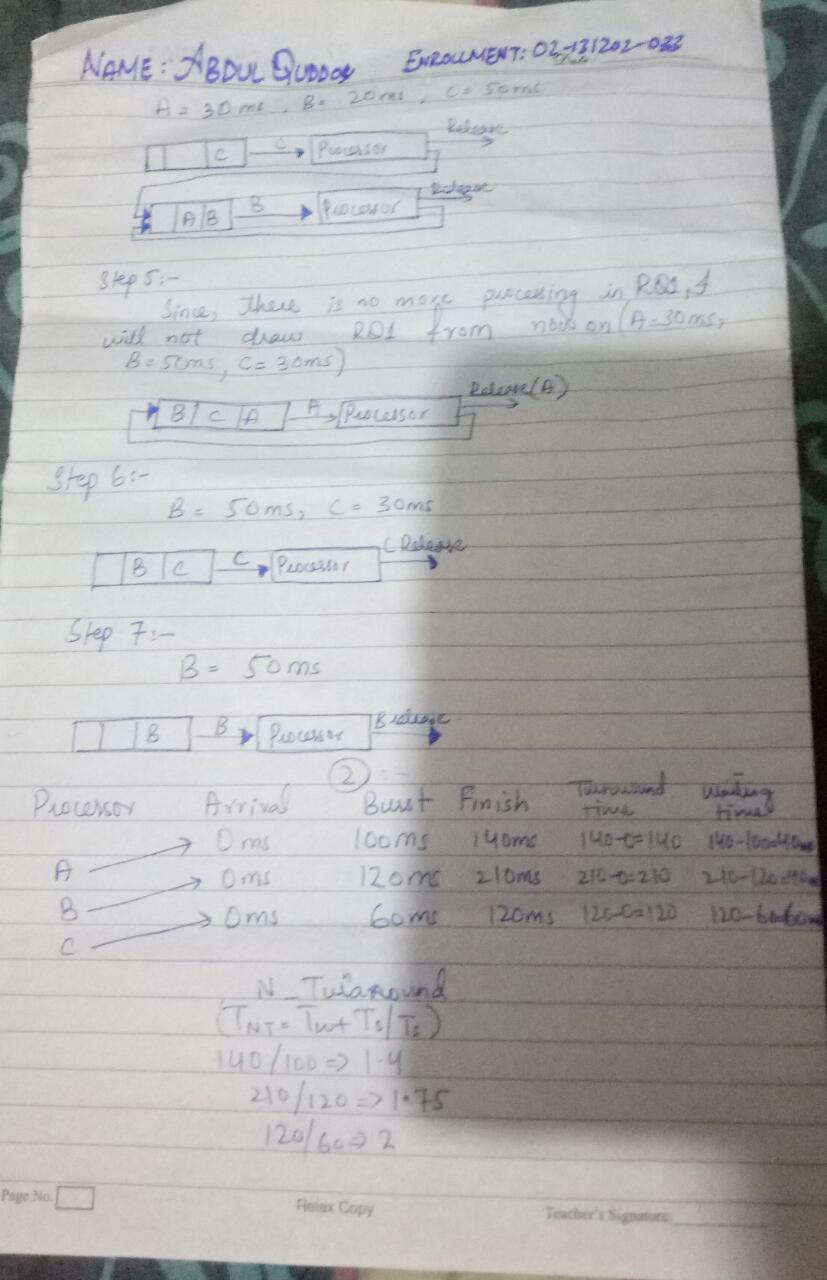 NAME: ABDUL QUDDOS ENROLLMENT: 02-131202-033
A = 30 ms, B = 20 ms, C = 50 ms
C C Processor Release
A B B Processor Release
Step 5:-
Since, there is no more processing in RQ1, I
will not draw RQ1 from now on (A=30ms,
B = 50ms, C = 30ms)
B C A A Processor Release(A)
Step 6:-
B = 50ms, C = 30ms
B C C Processor C Release
Step 7:-
B = 50ms
B B Processor B release
2 :-
Processor Arrival Burst Finish Turnaround time waiting time
A 0ms 100ms 140ms 140-0=140 140-100=40ms
B 0ms 120ms 210ms 210-0=210
C 0ms 60ms 120ms 120-0=120 120-60=60ms
N_Turaround
(TNT = Tw+ Ts/Ts)
140/100 => 1.4
210/120 => 1.75
120/60 => 2
Page No. Relax Copy Teacher's Signature